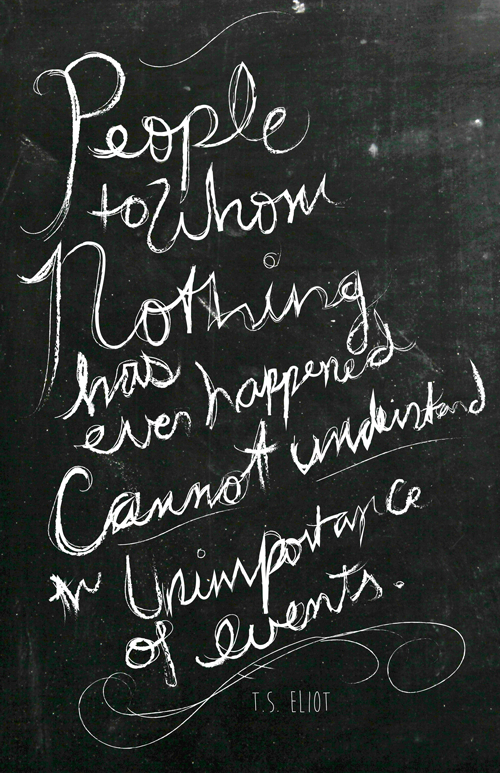 People
to Whom
Nothing
has
ever happened
Cannot understand
the Unimportance
of events.
T.S. ELIOT